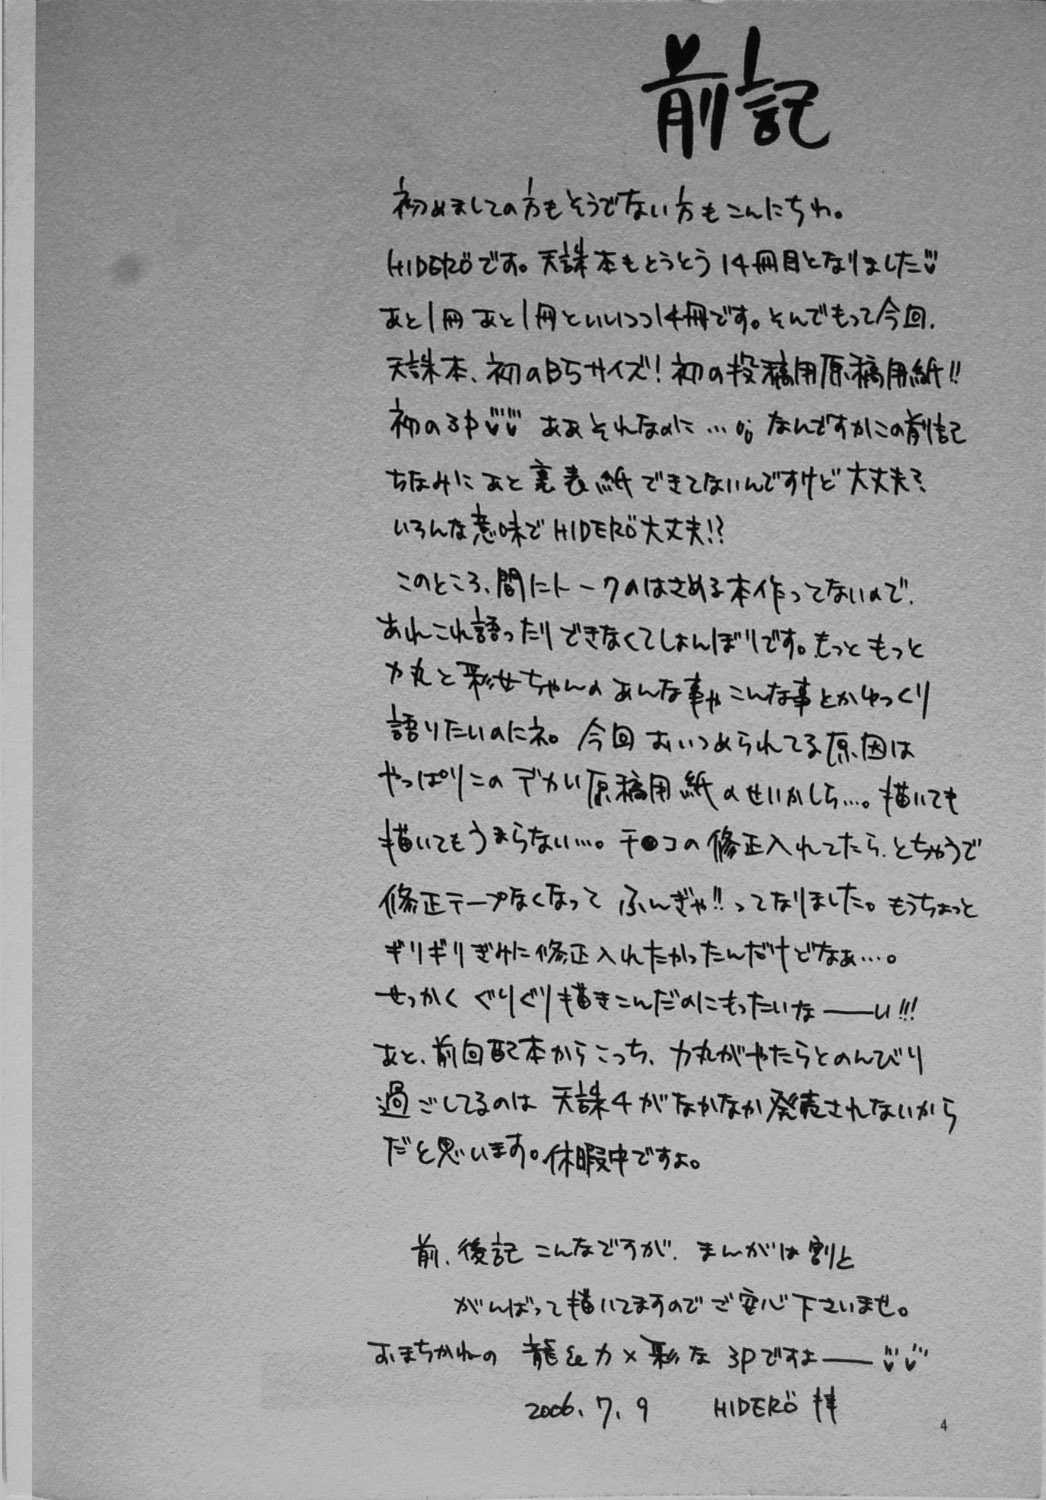 前記
初めましての方もそうでない方もこんにちわ。
HIDERÖです。天誅本もとうとう14冊目となりました♡
あと1冊あと1冊といいつつ14冊です。そんでもって今回、
天誅本、初のB5サイズ！初の投稿用原稿用紙!!
初の3P♡♡ ああそれなのに…。なんですかこの前記
ちなみにあと裏表紙できてないんですけど大丈夫？
いろんな意味でHIDERÖ大丈夫!?
このところ、間にトークのはさめる本作ってないので、
あれこれ語ったりできなくてしょんぼりです。もっともっと
力丸と彩女ちゃんのあんな事やこんな事とかゆっくり
語りたいのにネ。今回おいつめられてる原因は
やっぱりこのデカい原稿用紙のせいかしら…。描いても
描いてもうまらない…。チ●コの修正入れてたら、とちゅうで
修正テープなくなって ふんぎゃ!!ってなりました。もうちょっと
ギリギリぎみに修正入れたかったんだけどなぁ…。
せっかく ぐりぐり描きこんだのにもったいなーーい!!!
あと、前回配本からこっち、力丸がやたらとのんびり
過ごしてるのは 天誅4がなかなか発売されないから
だと思います。休暇中ですよ。
前、後記 こんなですが、まんがは割と
がんばって描いてますのでご安心下さいませ。
おまちかねの 龍&力×彩な 3Pですよーー♡♡
2006.7.9 HIDERÖ 拝
4